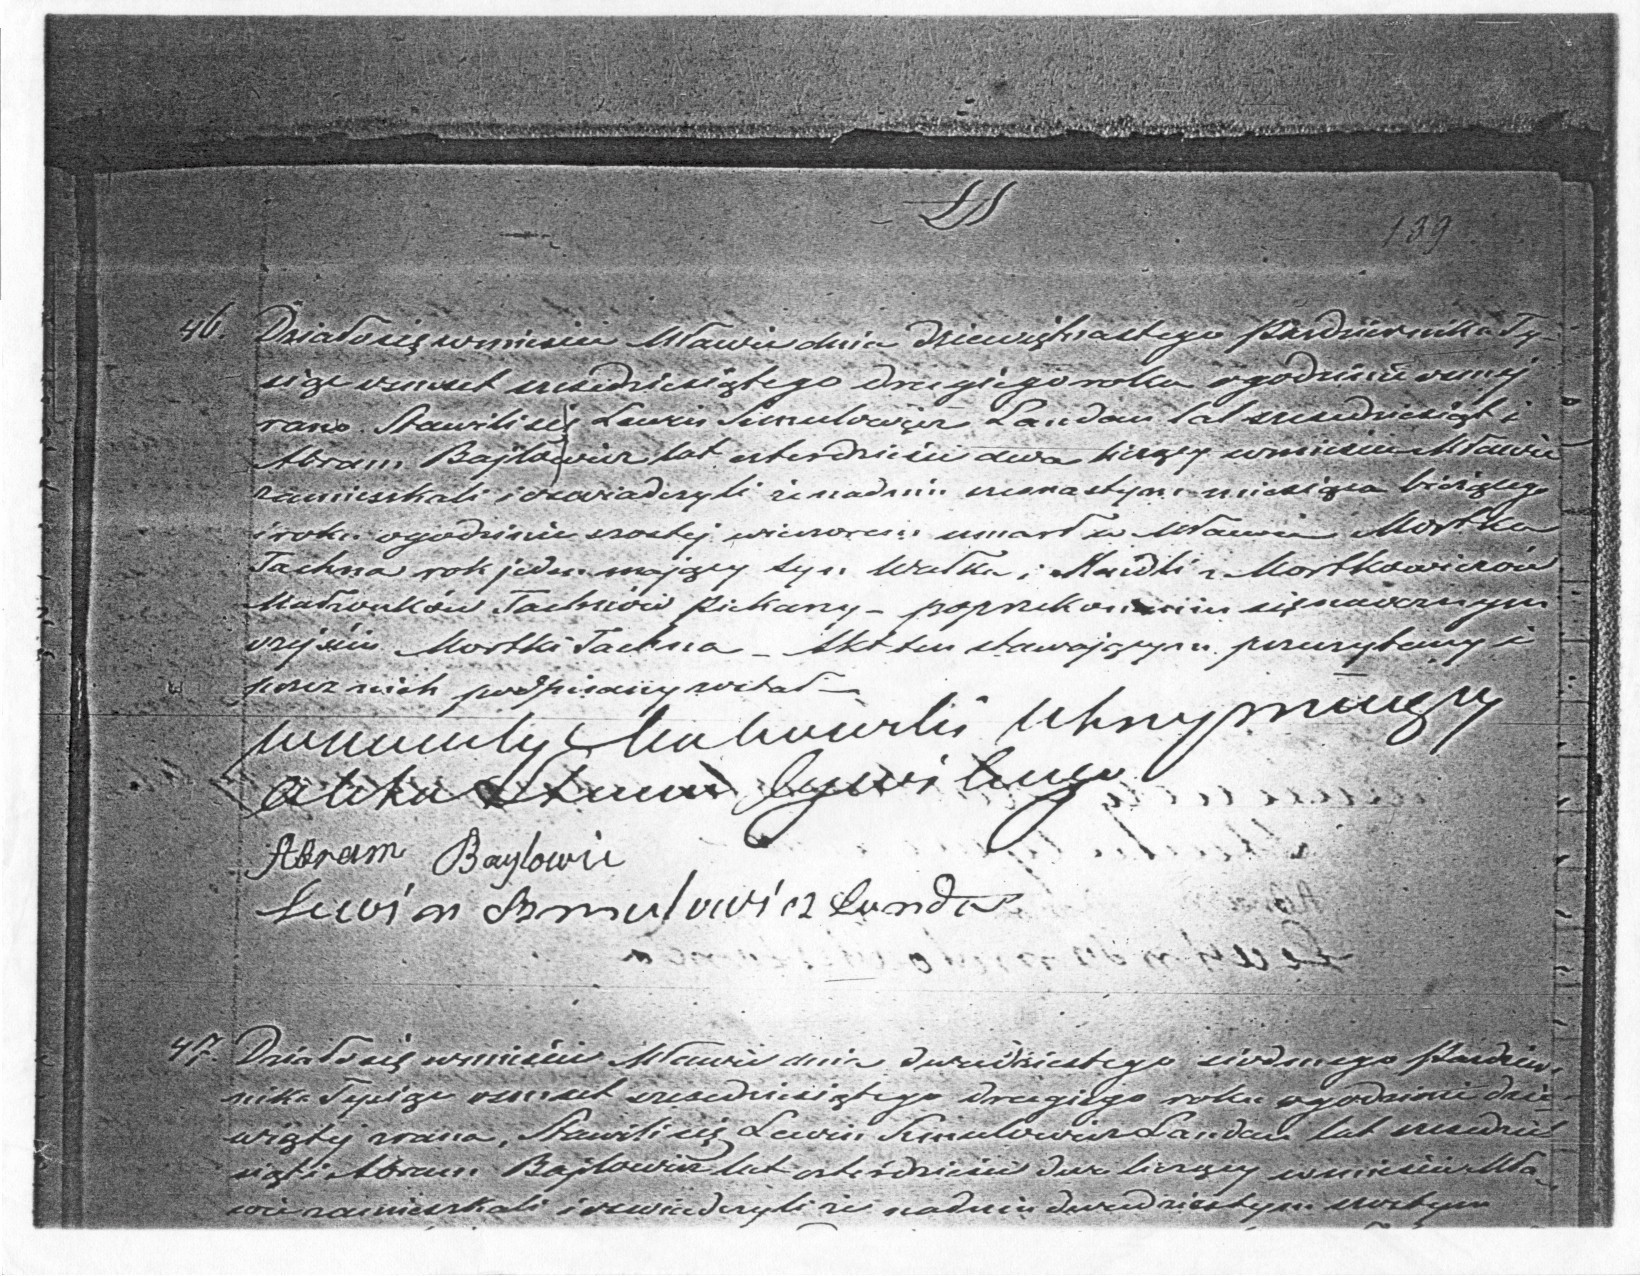 139
46. Działo się w mieście Mławie dnia dziewiętnastego Października Ty-
siąc osmset sześćdziesiątego drugiego roku o godzinie osmej
rano. Stawili się Lewin Szmulowicz Landau lat sześćdziesiąt i
Abram Bajlowicz lat czterdzieści dwa liczący w mieście Mławie
zamieszkali i oświadczyli że na dniu miesiąca bieżącego
i roku o godzinie szostej wieczorem umarł w Mławie Mortka
Tachna rok jeden mający syn Wolka i z Mortkowiczów
Małżonków Tachnów Piekarzy – po przekonaniu się naocznym
zejściu Mortki Tachna – Akt ten stawającym przeczytany i
przez nich podpisany został –
utrzymujący
akta Stanu Cywilnego
Abram Baylowic
Lewin Szmulowicz Landa
47. Działo się w mieście Mławie dnia dwudziestego siodmego Paździer-
nika Tysiąc osmset sześćdziesiątego drugiego roku o godzinie dzie-
wiątej zrana, Stawili się Lewin Szmulowicz Landau lat sześćdzie
siąt i Abram Bajlowicz lat czterdzieści dwa liczący w mieście Mła-
wie zamieszkali i oświadczyli że na dniu dwudziestym szostym